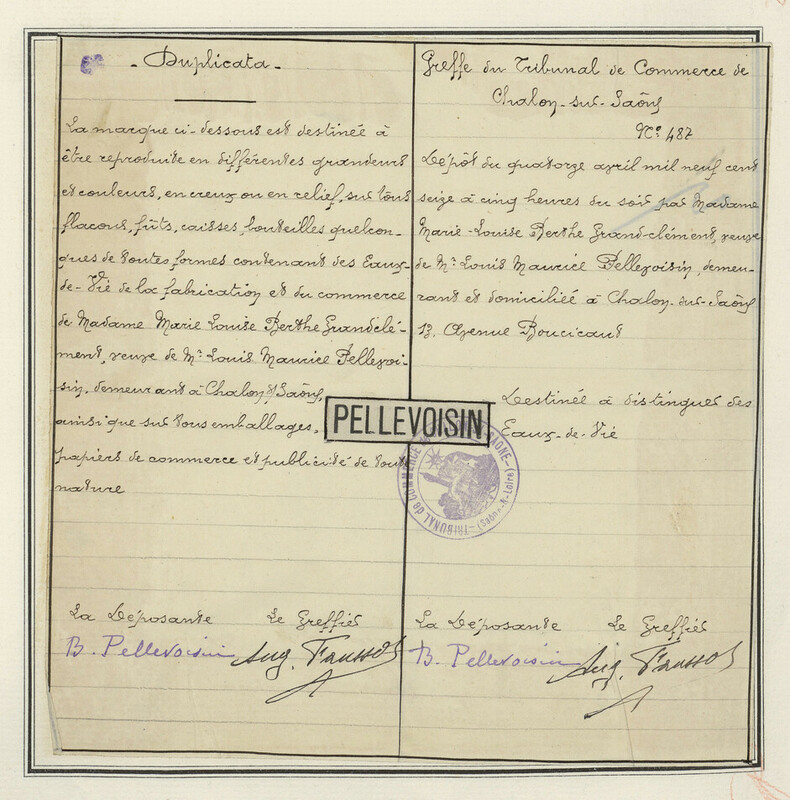 - Duplicata -
La marque ci-dessous est destinée à
être reproduite en différentes grandeurs
et couleurs, en creux ou en relief, sur tous
flacons, fûts, caisses, bouteilles quelcon-
ques de toutes formes contenant des Eaux-
de-Vie de la fabrication et du commerce
de Madame Marie Louise Berthe Grandclé-
ment, veuve de Mr Louis Maurice Pellevoi-
sin, demeurant à Chalon s/ Saône,
ainsi que sur tous emballages,
papiers de commerce et publicité de toute
nature
La Déposante Le Greffier
B. Pellevoisin Aug.
PELLEVOISIN
Greffe du Tribunal de Commerce de
Chalon-sur-Saône
No 487
Dépôt du quatorze avril mil neuf cent
seize à cinq heures du soir par Madame
Marie-Louise Berthe Grand-clément, veuve
de Mr Louis Maurice Pellevoisin, demeu-
rant et domiciliée à Chalon-sur-Saône
13, Avenue Boucicaut
Destinée à distinguer des
Eaux-de-Vie
TRIBUNAL de COMMERCE SAONE
(Saône-&-Loire)
La Déposante Le Greffier
B. Pellevoisin Aug.